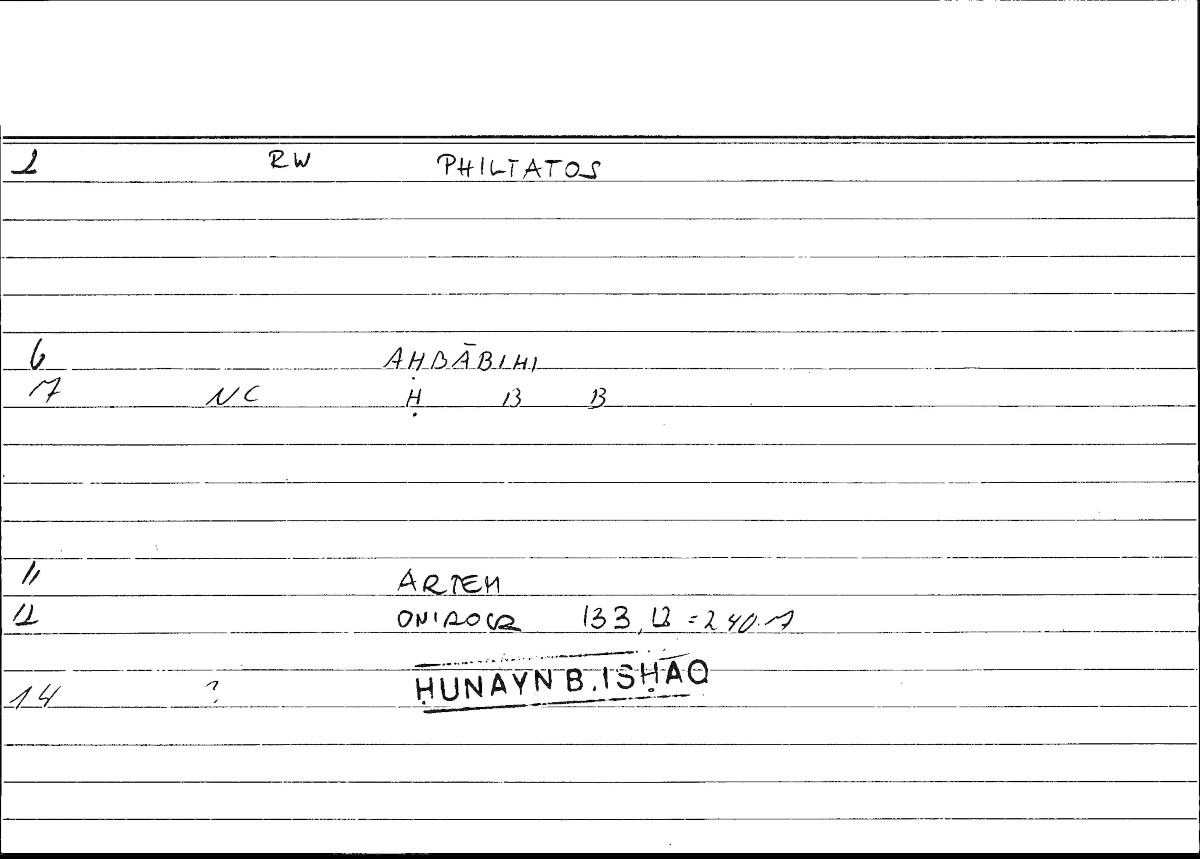 1 RW PHILTATOS
6 AḤBĀBIHI
7 NC Ḥ B B
11 ARTEM
12 ONIROCR 133,12 = 240.7
14 ? ḤUNAYN B. ISḤAQ